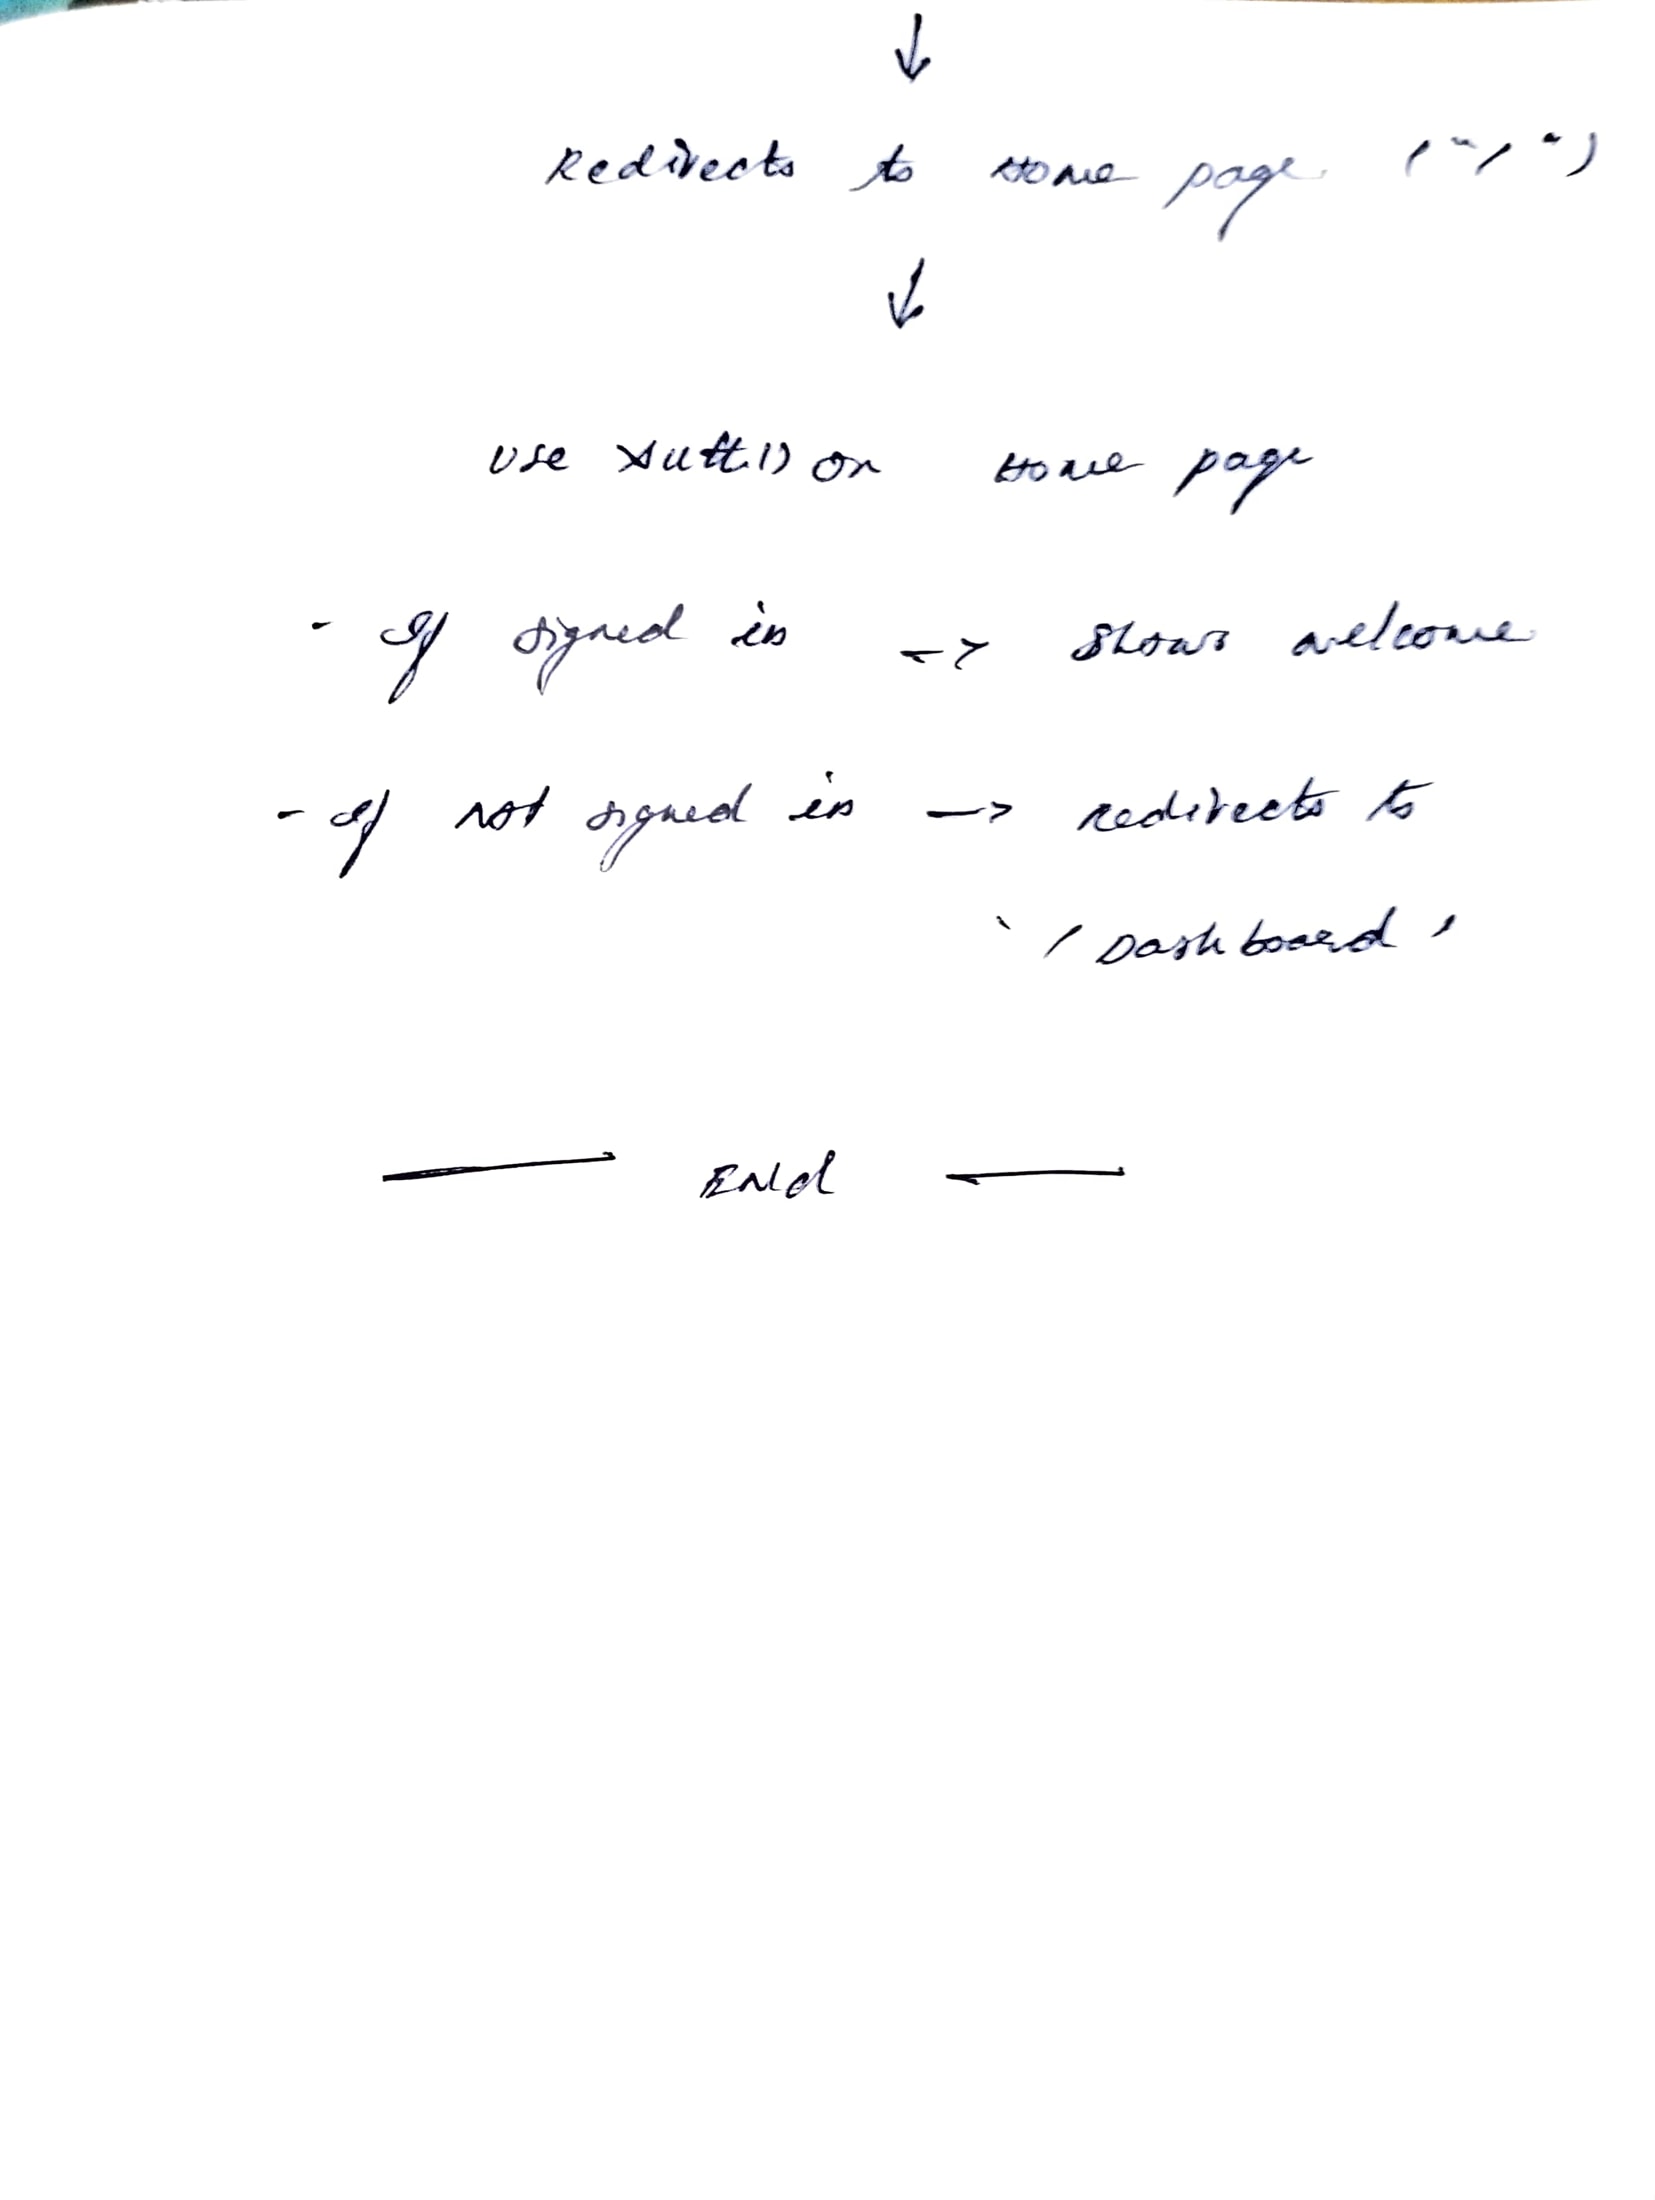 ↓
Redirects to Home page ("/")
↓
use Auth() on Home page
- If signed in -> Shows welcome
- If not signed in -> redirects to
'/Dashboard'
— End —